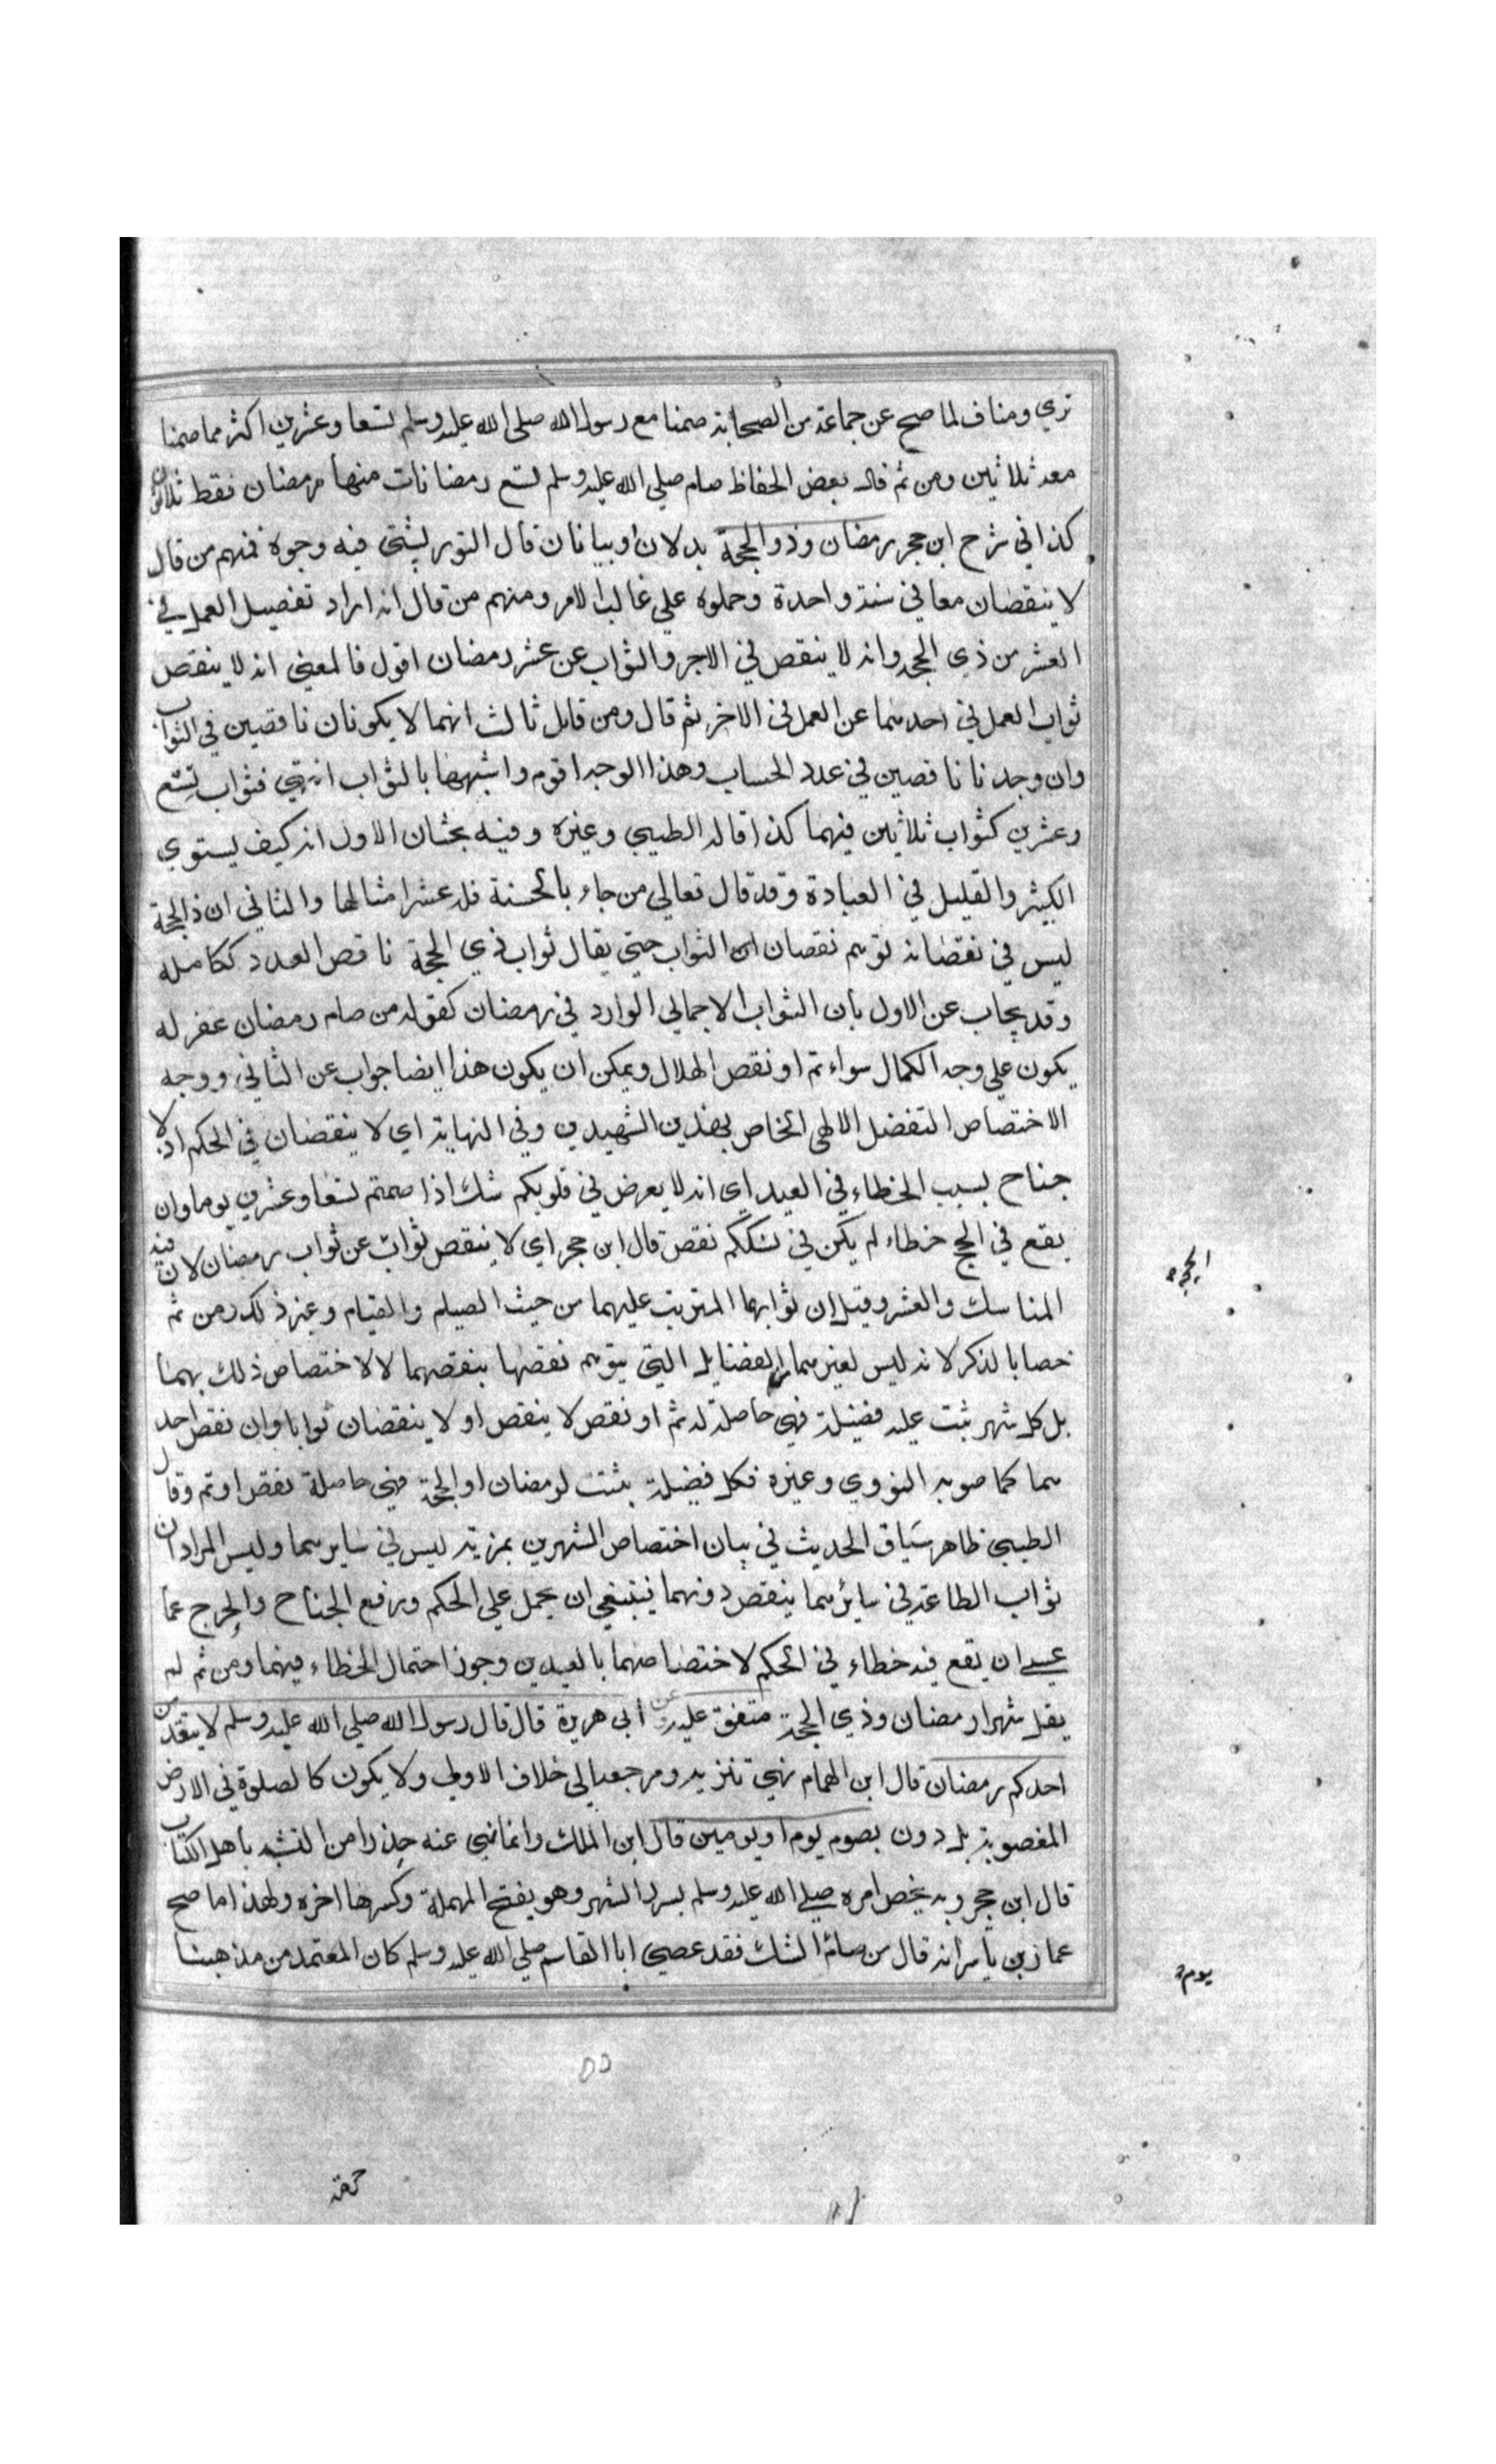 تري ومناف لما صح عن جماعة من الصحابة صمنا مع رسول الله صلى الله عليه وسلم تسعا وعشرين اكثر مما صمنا
معه ثلاثين ومن ثم قال بعض الحفاظ صام صلي الله عليه وسلم تسع رمضانات منها رمضان فقط ثلاثون
كذا في شرح ابن حجر رمضان وذو الحجة بدلان او بيانان قال التوربشتي فيه وجوه فمنهم من قال
لا ينقصان معا في سنة واحدة وحملوه علي غالب الامر ومنهم من قال انه اراد تفصيل العمل في
العشر من ذي الحجه وانه لا ينقص في الاجر والثواب عن عشر رمضان اقول فالمعني انه لا ينقص
ثواب العمل في احدهما عن العمل في الاخر ثم قال ومن قايل ثالث انهما لا يكونان ناقصين في الثواب
وان وجدنا ناقصين في عدد الحساب وهذا الوجه اقوم واشبهها بالثواب انتهي فثواب تسع
وعشرين كثواب ثلاثين فيهما كذا قاله الطيبي وغيره وفيه بحثان الاول انه كيف يستوي
الكثير والقليل في العبادة وقد قال تعالي من جاء بالحسنة فله عشر امثالها والثاني ان ذا الحجة
ليس في نقصانه توهم نقصان الثواب حتي يقال ثواب ذي الحجة ناقص العدد ككامله
وقد يجاب عن الاول بأن الثواب الاجمالي الوارد في رمضان كقوله من صام رمضان غفر له
يكون علي وجه الكمال سواء تم او نقص الهلال ويمكن ان يكون هذا ايضا جواب عن الثاني ووجه
الاختصاص التفضل الالهي الخاص بهذين الشهرين وفي النهاية اي لا ينقصان في الحكم اذ لا
جناح بسبب الخطاء في العيد اي انه لا يعرض في قلوبكم شك اذا صمتم تسعا وعشرين يوما وان
يقع في الحج خطاء لم يكن في نسككم نقص قال ابن حجر اي لا ينقص ثواب عن ثواب رمضان لان فيه
الحجة
المناسك والعشر وقيل ان ثوابهما المترتب عليهما من حيث الصيام والقيام وغير ذلك ومن ثم
خصا بالذكر لانه ليس لغيرهما من الفضايل التي يتوهم نقصها بنقصهما لا لاختصاص ذلك بهما
بل كل شهر ثبت عليه فضيلة فهي حاصلة له تم او نقص لا ينقص او لا ينقصان ثوابا وان نقص احد
هما كما صوبه النووي وغيره فكل فضيلة ثبتت لرمضان او الحجة فهي حاصلة نقص او تم وقال
الطيبي ظاهر سياق الحديث في بيان اختصاص الشهرين بمزية ليس في سايرهما وليس المراد ان
ثواب الطاعة في سائرهما ينقص دونهما فينبغي ان يحمل علي الحكم ورفع الجناح والحرج عما
عسي ان يقع فيه خطاء في الحكم لاختصاصهما بالعيدين وجوز احتمال الخطاء فيهما ومن ثم لم
يقل شهرا رمضان وذي الحجة متفق عليه وعن أبي هريرة قال قال رسول الله صلي الله عليه وسلم لا يتقدمن
احدكم رمضان قال ابن الهمام نهي تنزيه ومرجعه الى خلاف الاولي ولا يكون كالصلوة في الارض
المغصوبة بل دون بصوم يوم او يومين قال ابن الملك وانما نهي عنه حذرا من التشبه بأهل الكتاب
قال ابن حجر وبه يخص امره صلي الله عليه وسلم بسرر الشهر وهو بفتح المهملة وكسرها اخره ولهذا ما صح
عمار بن ياسر انه قال من صام الشك فقد عصي ابا القاسم صلي الله عليه وسلم كان المعتمد من مذهبنا
يوم